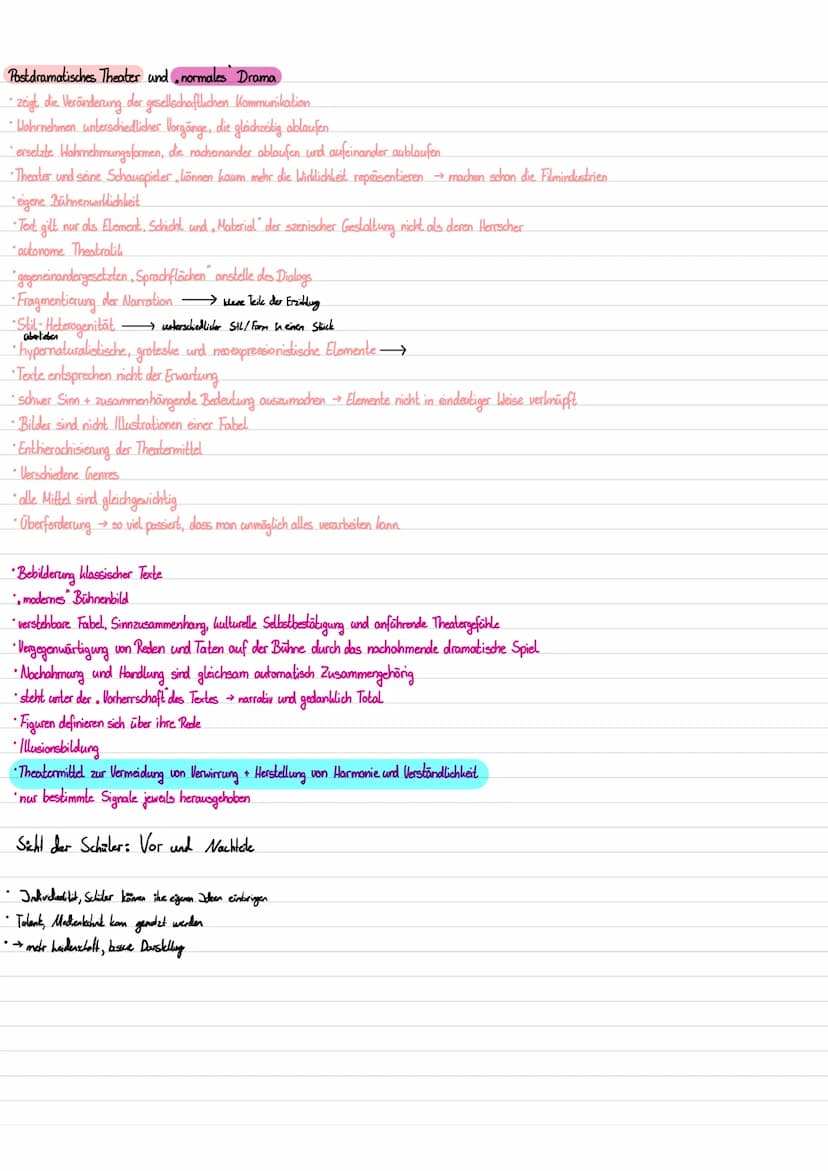 Postdramatisches Theater und „normales" Drama
• zeigt die Veränderung der gesellschaftlichen Kommunikation
• Wahrnehmen unterschiedlicher Vorgänge, die gleichzeitig ablaufen
• ersetzte Wahrnehmungsformen, die nacheinander ablaufen und aufeinander aublaufen
• Theater und seine Schauspieler können kaum mehr die Wirklichkeit repräsentieren → machen schon die Filmindustrien
• eigene Bühnenwirklichkeit
• Text gilt nur als Element, Schicht und „Material" der szenischer Gestaltung nicht als deren Herrscher
• autonome Theatralik
• gegeneinandergesetzten „Sprachflächen" anstelle des Dialogs
• Fragmentierung der Narration → kleine Teile der Erzählung
• Stil-Heterogenität → unterschiedlicher Stil/Form in einen Stück
• hypernaturalistische, groteske und neoexpressionistische Elemente →
• Texte entsprechen nicht der Erwartung
• schwer Sinn + zusammenhängende Bedeutung auszumachen → Elemente nicht in eindeutiger Weise verknüpft
• Bilder sind nicht Illustrationen einer Fabel
• Enthierachisierung der Theatermittel
• Verschiedene Genres
• alle Mittel sind gleichgewichtig
• Überforderung → so viel passiert, dass man unmöglich alles verarbeiten kann.
• Bebilderung klassischer Texte
• „modernes" Bühnenbild
• verstehbare Fabel, Sinnzusammenhang, kulturelle Selbstbestätigung und anführende Theatergefühle
• Vergegenwärtigung von Reden und Taten auf der Bühne durch das nachahmende dramatische Spiel
• Nachahmung und Handlung sind gleichsam automatisch Zusammengehörig
• steht unter der „Vorherrschaft" des Textes → narrativ und gedanklich Total
• Figuren definieren sich über ihre Rede
• Illusionsbildung
• Theatermittel zur Vermeidung von Verwirrung + Herstellung von Harmonie und Verständlichkeit
• nur bestimmte Signale jeweils herausgehoben
Sicht der Schüler: Vor und Nachteile
• Individualität, Schüler können ihre eigenen Ideen einbringen
• Talent, Medientechnik kann genutzt werden
• → mehr Leidenschaft, bessere Darstellung